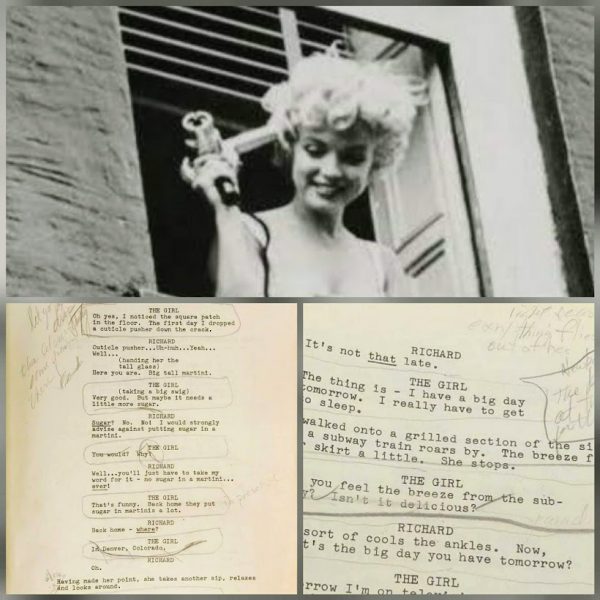 THE GIRL
Oh yes, I noticed the square patch
in the floor. The first day I dropped
a cuticle pusher down the crack.
RICHARD
Cuticle pusher...Uh-huh...Yeah...
Well...
(handing her the
tall glass)
Here you are. Big tall martini.
THE GIRL
(taking a big swig)
Very good. But maybe it needs a
little more sugar.
RICHARD
Sugar? No. No! I would strongly
advise against putting sugar in a
martini.
THE GIRL
You would? Why?
RICHARD
Well...you'll just have to take my
word for it - no sugar in a martini...
ever!
THE GIRL
That's funny. Back home they put
sugar in martinis a lot.
RICHARD
Back home - where?
THE GIRL
In Denver, Colorado.
RICHARD
Oh.
Having made her point, she takes another sip, relaxes
and looks around.
everything
out of her
RICHARD
It's not that late.
THE GIRL
The thing is - I have a big day
tomorrow. I really have to get
to sleep.
walked onto a grilled section of the si
a subway train roars by. The breeze f
skirt a little. She stops.
THE GIRL
you feel the breeze from the sub-
y? Isn't it delicious?
RICHARD
sort of cools the ankles. Now,
t's the big day you have tomorrow?
THE GIRL
rrow I'm on televisi